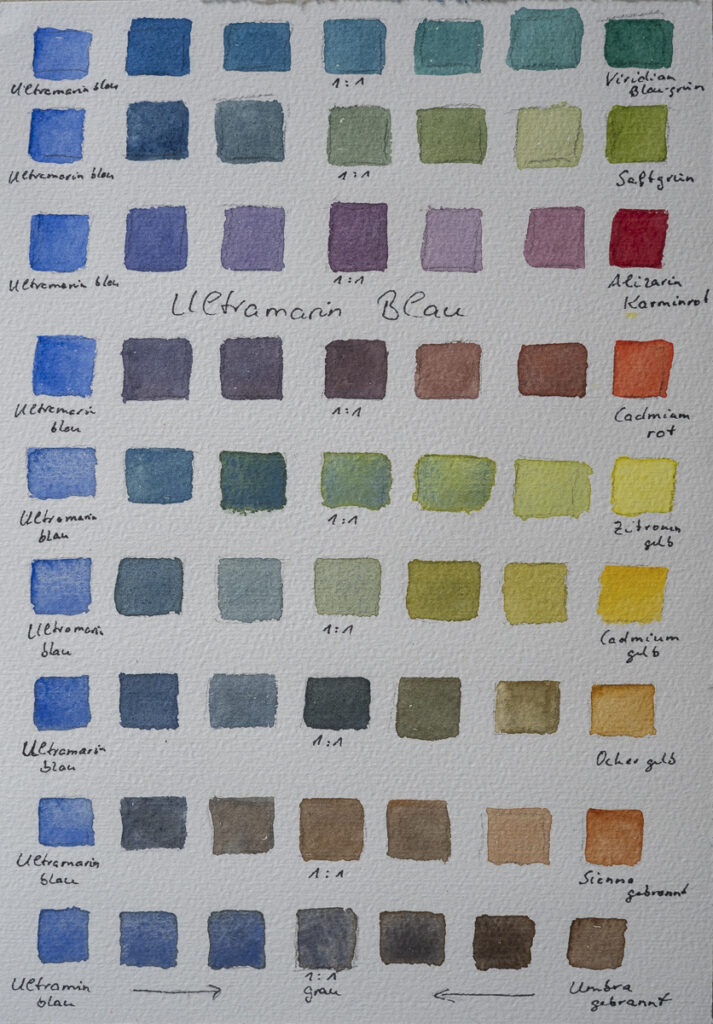 Ultramarin blau
1:1
Viridian
Blau-grün
Ultramarin blau
1:1
Saftgrün
Ultramarin blau
1:1
Alizarin
Karminrot
Ultramarin Blau
Ultramarin
blau
1:1
Cadmium
rot
Ultramarin
blau
1:1
Zitronen
gelb
Ultramarin
blau
1:1
Cadmium
gelb
Ultramarin
blau
1:1
Ocher gelb
Ultramarin
blau
1:1
Sienna
gebrannt
Ultramin
blau
1:1
grau
Umbra
gebrannt